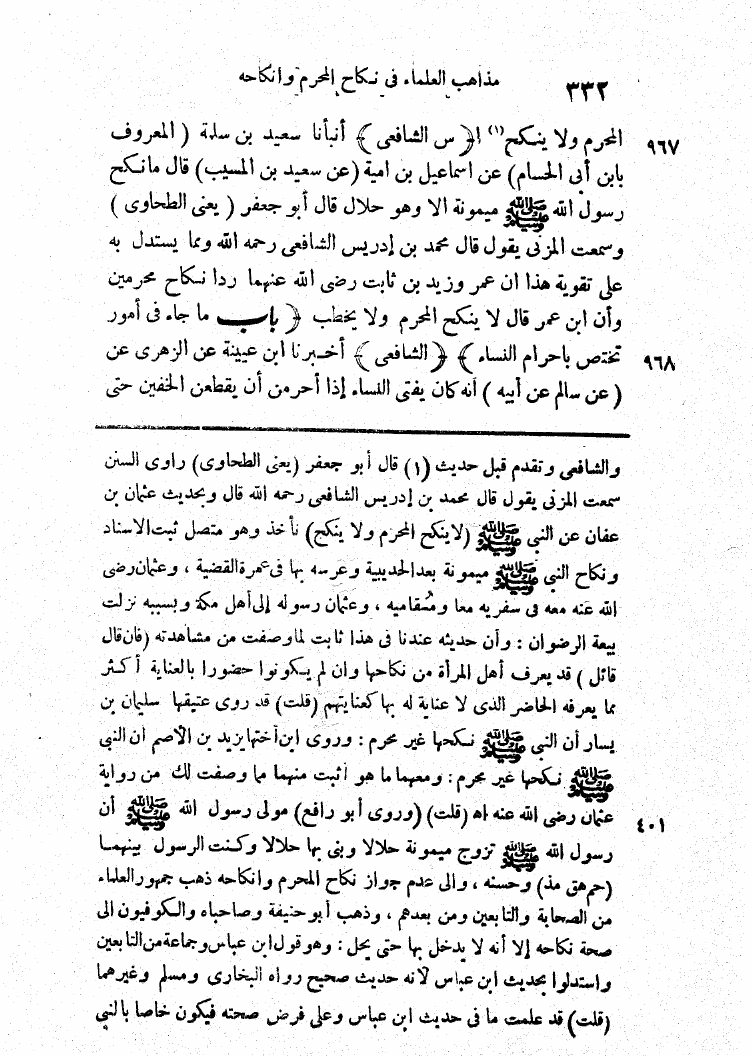 ٣٣٢ مذاهب العلماء فى نكاح المحرم وانكاحه
٩٦٧ المحرم ولا ينكح (١) ا ﴿ س الشافعى ﴾ أنبأنا سعيد بن سلمة ( المعروف
بابن أبى الحسام) عن اسماعيل بن امية (عن سعيد بن المسيب) قال مانكح
رسول الله ﷺ ميمونة الا وهو حلال قال أبو جعفر ( يعنى الطحاوى )
وسمعت المزنى يقول قال محمد بن إدريس الشافعى رحمه الله ومما يستدل به
على تقوية هذا ان عمر وزيد بن ثابت رضى الله عنهما ردا نكاح محرمين
وأن ابن عمر قال لا ينكح المحرم ولا يخطب ﴿ باب ما جاء فى أمور
٩٦٨ تختص باحرام النساء ﴾ ﴿ الشافعى ﴾ أخبرنا ابن عيينة عن الزهرى عن
( عن سالم عن أبيه ) انه كان يفتى النساء إذا أحرمن أن يقطعن الخفين حتى
والشافعى وتقدم قبل حديث (١) قال أبو جعفر (يعنى الطحاوى) راوى السنن
سمعت المزنى يقول قال محمد بن إدريس الشافعى رحمه الله قال وبحديث عثمان بن
عفان عن النبى ﷺ (لاينكح المحرم ولا ينكح) نأخذ وهو متصل ثبت الاسناد
ونكاح النبى ﷺ ميمونة بعد الحديبية وعرسه بها فى عمرة القضية ، وعثمان رضى
الله عنه معه فى سفريه معا ومقاميه ، وعثمان رسوله إلى أهل مكة وبسببه نزلت
بيعة الرضوان : وأن حديثه عندنا فى هذا ثابت لما وصفت من مشاهدته (فان قال
قائل ) قد يعرف أهل المرأة من نكاحها وان لم يكونوا حضورا بالعناية أكثر
مما يعرفه الحاضر الذى لا عناية له بها كعنايتهم (قلت) قد روى عتيقها سليمان بن
يسار أن النبى ﷺ نكحها غير محرم : وروى ابن أختها يزيد بن الأصم أن النبى
ﷺ نكحها غير محرم : ومعهما ما هو أثبت منهما مما وصفت لك من رواية
٤٠١ عثمان رضى الله عنه اه (قلت) (وروى أبو رافع) مولى رسول الله ﷺ أن
رسول الله ﷺ تزوج ميمونة حلالا وبنى بها حلالا وكنت الرسول بينهما
(حم هق مذ) وحسنه ، والى عدم جواز نكاح المحرم وانكاحه ذهب جمهور العلماء
من الصحابة والتابعين ومن بعدهم ، وذهب أبو حنيفة وصاحباه والكوفيون الى
صحة نكاحه إلا أنه لا يدخل بها حتى يحل : وهو قول ابن عباس وجماعة من التابعين
واستدلوا بحديث ابن عباس لأنه حديث صحيح رواه البخارى ومسلم وغيرهما
(قلت) قد علمت ما فى حديث ابن عباس وعلى فرض صحته فيكون خاصا بالنبى